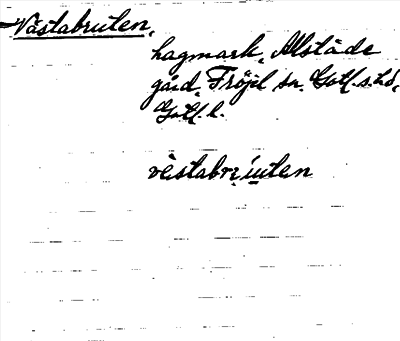 Västabruten,
hagmark, Alstäde
gård, Fröjel sn, Gotl. s. hd,
Gotl. l.
vèstabrúuten